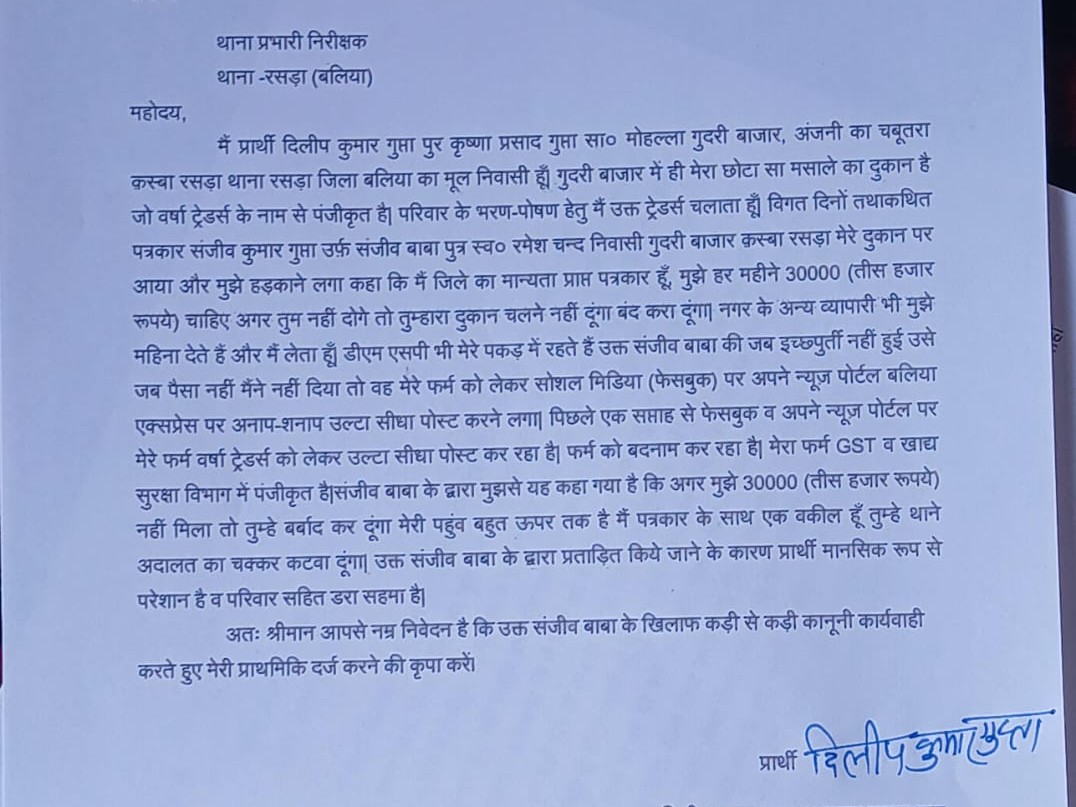 थाना प्रभारी निरीक्षक
थाना -रसड़ा (बलिया)
महोदय,
मैं प्रार्थी दिलीप कुमार गुप्ता पुर कृष्णा प्रसाद गुप्ता सा० मोहल्ला गुदरी बाजार, अंजनी का चबूतरा
क़स्बा रसड़ा थाना रसड़ा जिला बलिया का मूल निवासी हूँ| गुदरी बाजार में ही मेरा छोटा सा मसाले का दुकान है
जो वर्षा ट्रेडर्स के नाम से पंजीकृत है| परिवार के भरण-पोषण हेतु मैं उक्त ट्रेडर्स चलाता हूँ| विगत दिनों तथाकथित
पत्रकार संजीव कुमार गुप्ता उर्फ़ संजीव बाबा पुत्र स्व० रमेश चन्द निवासी गुदरी बाजार क़स्बा रसड़ा मेरे दुकान पर
आया और मुझे हड़काने लगा कहा कि मैं जिले का मान्यता प्राप्त पत्रकार हूँ, मुझे हर महीने 30000 (तीस हजार
रूपये) चाहिए अगर तुम नहीं दोगे तो तुम्हारा दुकान चलने नहीं दूंगा बंद करा दूंगा| नगर के अन्य व्यापारी भी मुझे
महिना देते हैं और मैं लेता हूँ| डीएम एसपी भी मेरे पकड़ में रहते हैं उक्त संजीव बाबा की जब इच्छपुर्ती नहीं हुई उसे
जब पैसा नहीं मैंने नहीं दिया तो वह मेरे फर्म को लेकर सोशल मिडिया (फेसबुक) पर अपने न्यूज़ पोर्टल बलिया
एक्सप्रेस पर अनाप-शनाप उल्टा सीधा पोस्ट करने लगा| पिछले एक सप्ताह से फेसबुक व अपने न्यूज़ पोर्टल पर
मेरे फर्म वर्षा ट्रेडर्स को लेकर उल्टा सीधा पोस्ट कर रहा है| फर्म को बदनाम कर रहा है| मेरा फर्म GST व खाद्य
सुरक्षा विभाग में पंजीकृत है|संजीव बाबा के द्वारा मुझसे यह कहा गया है कि अगर मुझे 30000 (तीस हजार रूपये)
नहीं मिला तो तुम्हे बर्बाद कर दूंगा मेरी पहुंव बहुत ऊपर तक है मैं पत्रकार के साथ एक वकील हूँ तुम्हे थाने
अदालत का चक्कर कटवा दूंगा| उक्त संजीव बाबा के द्वारा प्रताड़ित किये जाने के कारण प्रार्थी मानसिक रूप से
परेशान है व परिवार सहित डरा सहमा है|
अतः श्रीमान आपसे नम्र निवेदन है कि उक्त संजीव बाबा के खिलाफ कड़ी से कड़ी कानूनी कार्यवाही
करते हुए मेरी प्राथमिकि दर्ज करने की कृपा करें।
प्रार्थी दिलीप कुमार गुप्ता